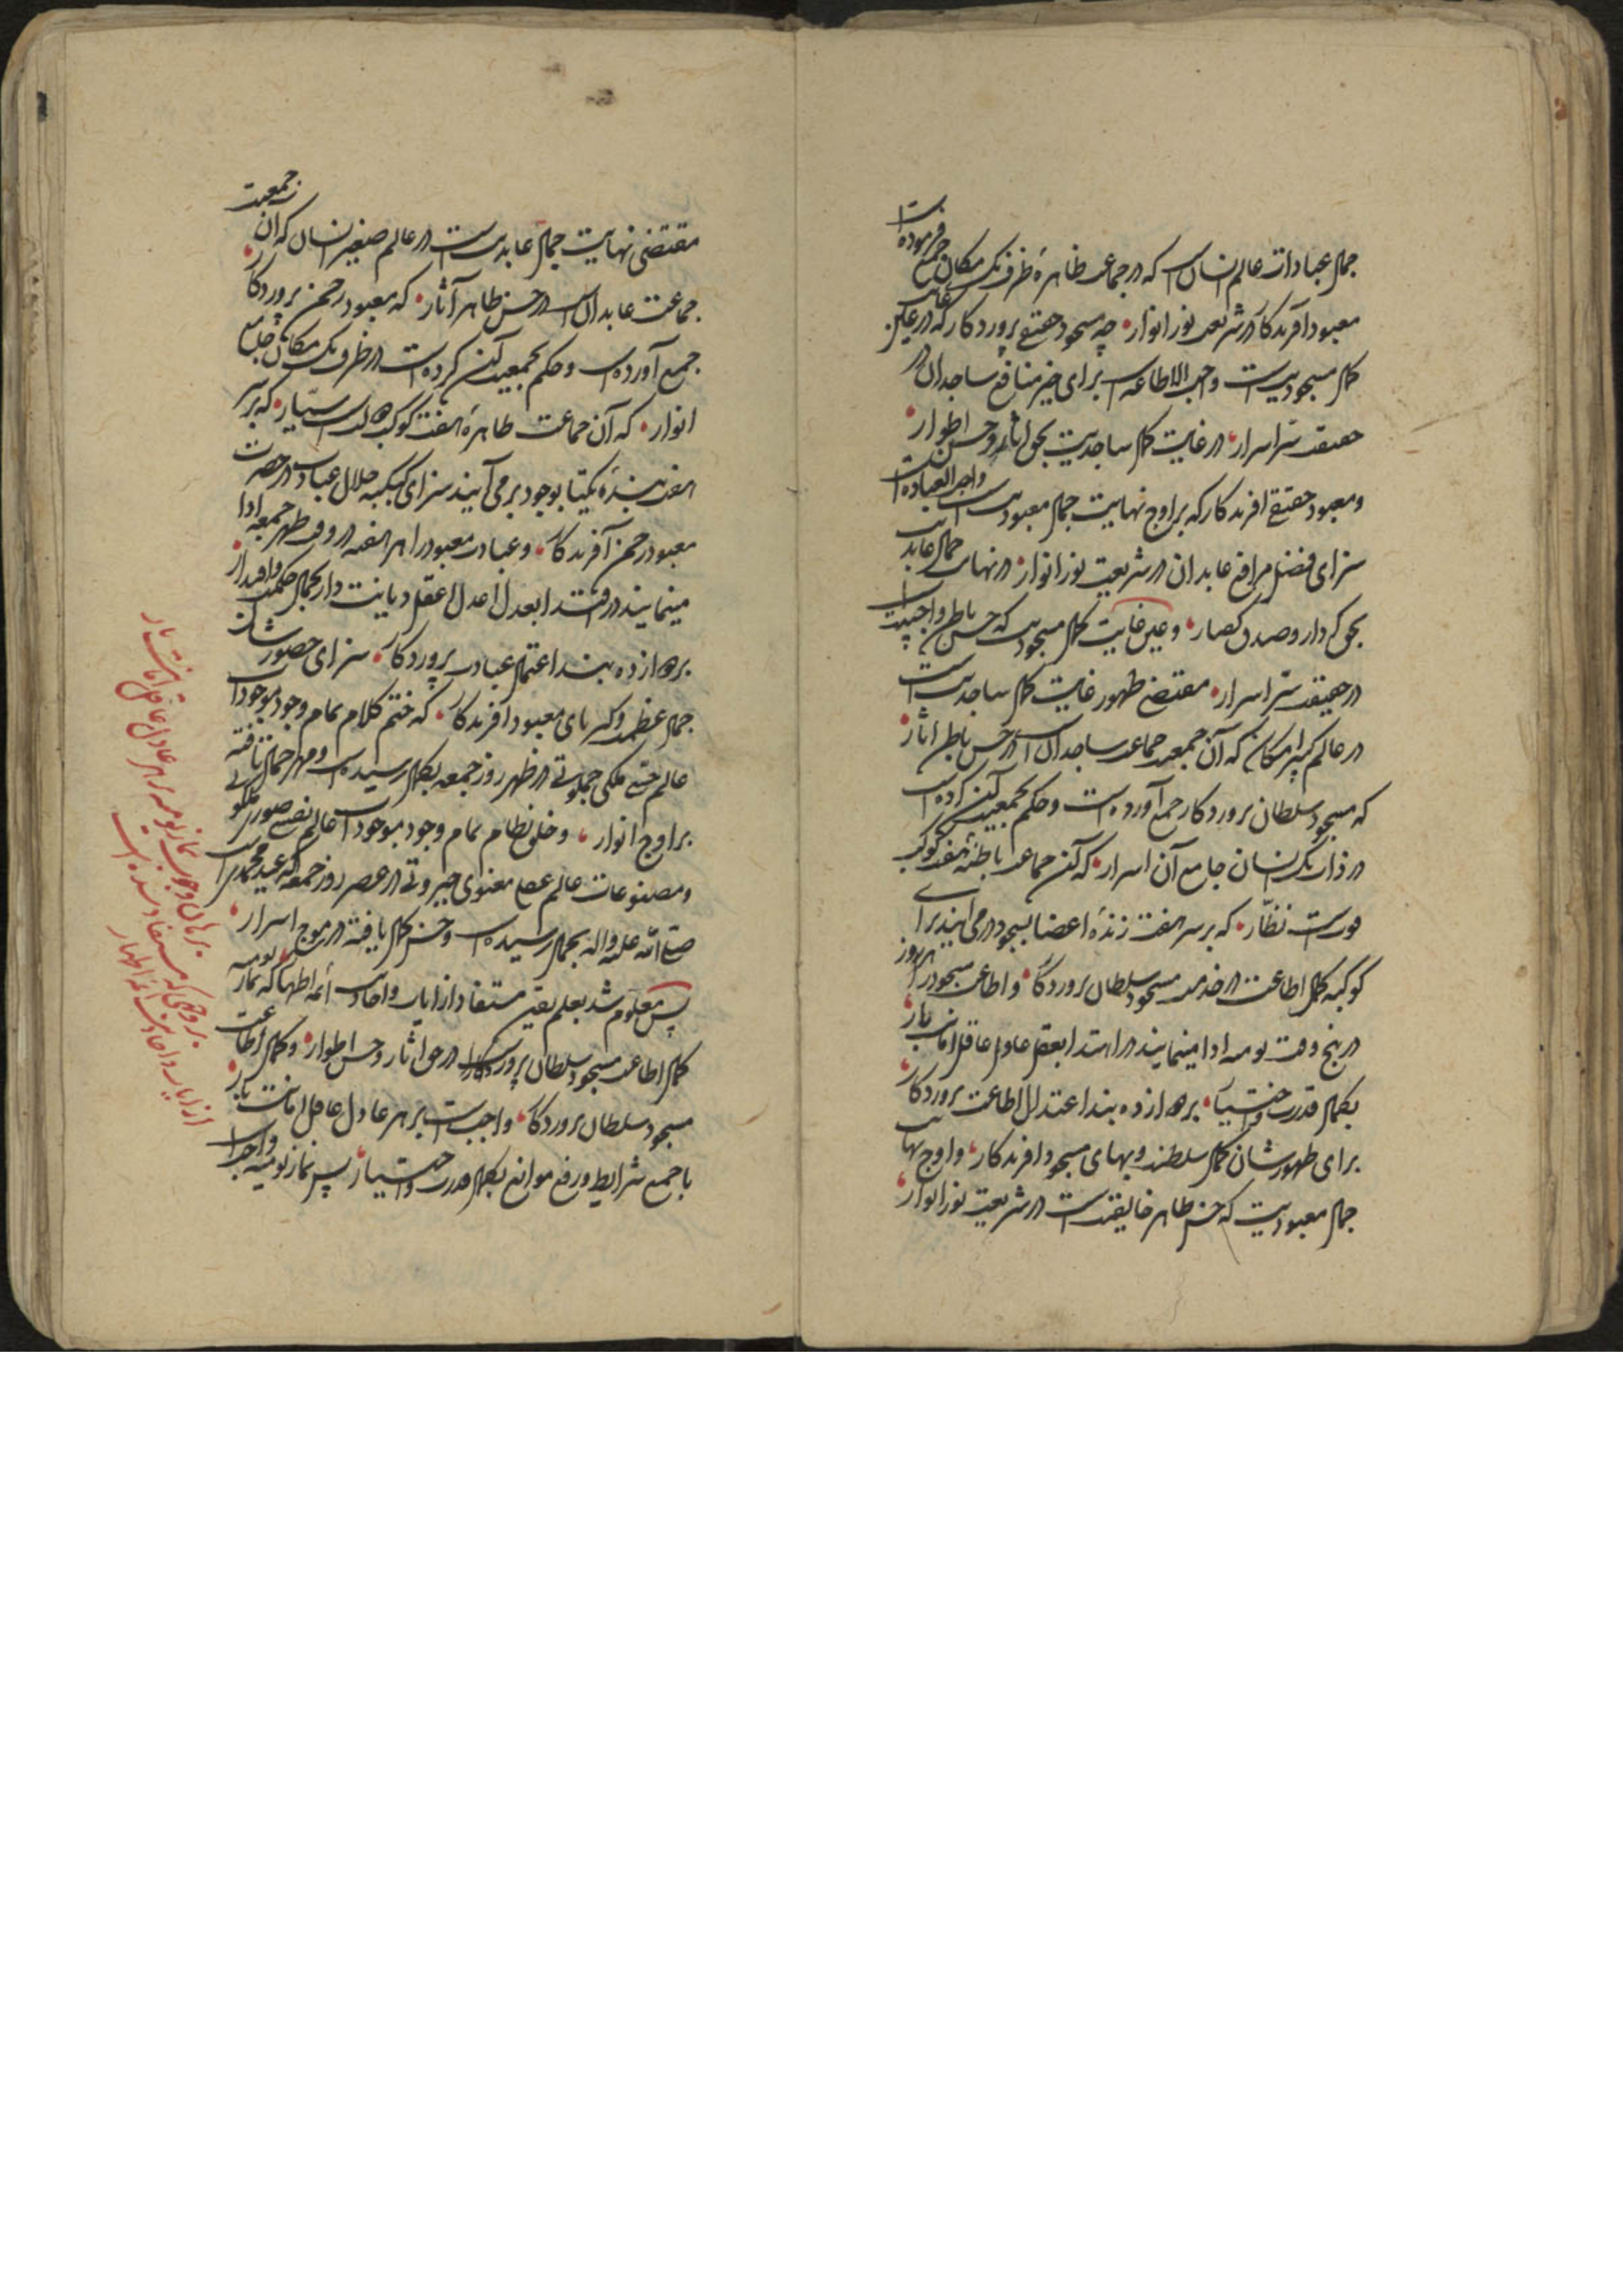 جمال عبادات عالم انسان است که در جماعت ظاهرهٔ ظرف یک مکان جمع فرموده است
معبود آفریدکار در شریعت نور انوار چه مسجود حقیقی پروردکار که در عین غایت
کمال مسجودیت است واجب الاطاعه است برای خیر منافع ساجدان در
حقیقت سرّ اسرار در غایت کمال ساجدیت بحق آثار و حسن اطوار
و معبود حقیقی افریدکار که بر اوج نهایت جمال معبودیت است واجب العباده است
سزای فضل مرافع عابدان در شریعت نور انوار در نهایت جمال عابدیت
بحق کردار و صدق کفتار و عین غایت کمال مسجودیت که حسن باطن واجبیت است
در حقیقت سرّ اسرار مقتضی ظهور غایت کمال ساجدیت است
در عالم کبیر امکان که آن جمعیت جماعت ساجدان است در حسن باطن آثار
که مسجود سلطان پروردکار جمع آورده است و حکم بجمعیت آن کرده است
در ذات یک انسان جامع آن اسرار که آن جماعت باطنهٔ هفت کوکب
نظّار که بر سر هفت زندهٔ اعضا بسجود در می آیند برای
کوکبه کمال اطاعت در خدمت مسجود سلطان پروردکار و اطاعت مسجود را هر روز
در پنج وقت یومیه ادا مینمایند در ابتدا بعقل عادل عاقل امانت بار
بکمال قدرت و اختیار بهر ازده بند اعتدال اطاعت پروردکار
برای ظهور شان کمال سلطنت و بهای مسجود افریدکار و اوج نهایت
جمال معبودیت که حسن ظاهر خالقیت است در شریعت نور انوار
مقتضی نهایت جمال عابدیت است در عالم صغیر انسان که آن جمعیت
جماعت عابدان است در حسن ظاهر آثار که معبود رحمن پروردکار
جمع آورده است و حکم بجمعیت آن کرده است در ظرف یک مکان جامع
انوار که آن جماعت ظاهرهٔ هفت کوکب است سیّار که بر سر
هفت بندهٔ یکتا بوجود بر می آیند سزای کبکبه جلال عبادت در حضرت
معبود رحمن آفریدکار و عبادت معبود را هر هفته در وقت ظهر جمعه ادا
مینمایند در ابتدا بعدل اعدل اعقل دیانت دار بجمال حکمت و اقتدار
بهر ازده بند اعتمال عبادت پروردکار سزای حضور شان
جمال عظمت و کبریای معبود افریدکار که ختم کلام تمام وجود موجودات
عالم حسی ملکی در ظهر روز جمعه بکمال رسیده است و مهر جمال تافته
بر اوج انوار و ختم نظام تمام وجود موجودات عالم نفسی صوری ملکوتی
و مصنوعات عالم عقلی معنوی جبروتی در عصر روز جمعه که عید محمدی است
صلی الله علیه و اله بجمال رسیده است و حسن کمال یافته در موج اسرار
پس معلوم شد بعلم یقین مستفاد از ایات و احادیث ائمه اطهار که نماز یومیه
کمال اطاعت مسجود سلطان پروردکار است در حق اثار و حسن اطوار و کمال اطاعت
مسجود سلطان پروردکار واجب است بر هر عادل عاقل امانت بار
با جمع شرایط و رفع موانع بکمال قدرت و اختیار پس نماز یومیه واجب است
برهان وجوب نماز یومیه بر هر عادل عاقل امانت بار
بر وجهی که مستفاد شده است
از ایات و احادیث ائمه اطهار